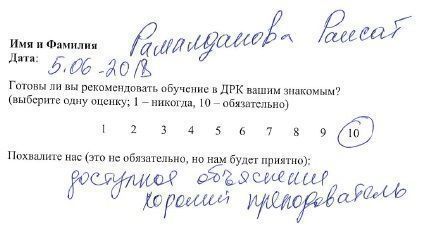 Имя и Фамилия Рамалданова Раисат
Дата: 5.06-2018
Готовы ли вы рекомендовать обучение в ДРК вашим знакомым?
(выберите одну оценку; 1 – никогда, 10 – обязательно)
1 2 3 4 5 6 7 8 9 10
Похвалите нас (это не обязательно, но нам будет приятно):
доступное объяснение
хороший преподователь